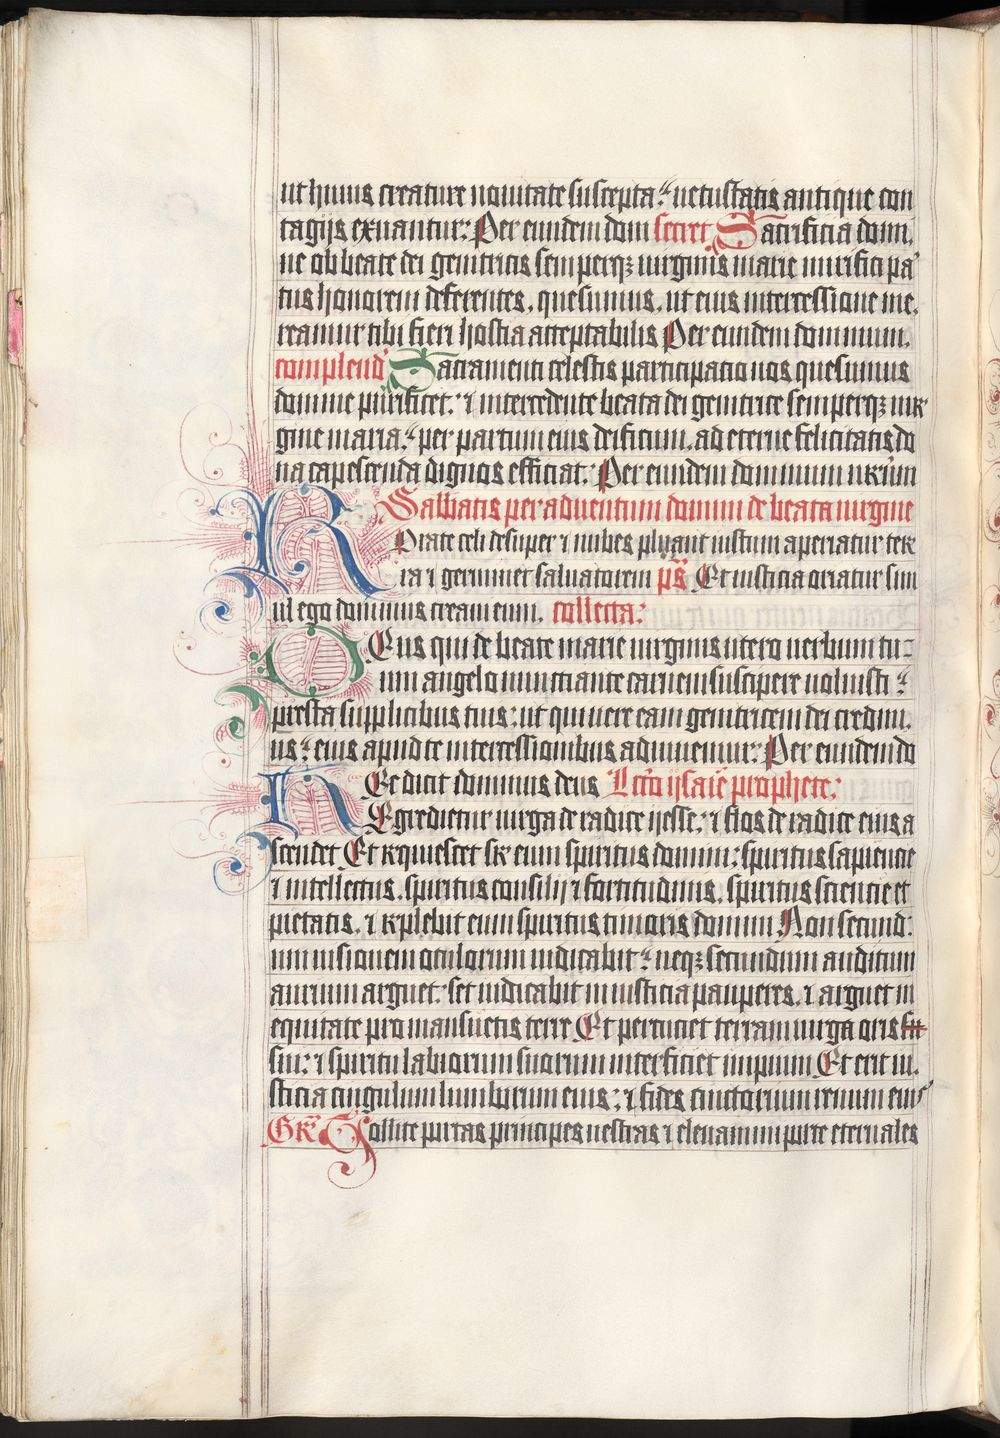 ut huius creature nouitate suscepta: uetustatis antique con
tagijs exuantur: Per eundem dom secret Sacrificia domi,
ne ob beate dei genitricis semperqꝫ uirginis marie mirifici pa
tus honorem deferentes, quesumus, ut eius intercessione me,
reamur tibi fieri hostia acceptabilis Per eundem dominum,
complend Sacramenti celestis participatio nos quesumus
domine purificet: ⁊ intercedente beata dei genitrice semperqꝫ uir
gine maria: per partum eius deificum, ad eterne felicitatis do
na capescenda dignos efficiat: Per eundem dominum nrūm
Sabbatis per aduentum domini de beata uirgine
Rorate celi desuper ⁊ nubes pluant iustum aperiatur ter
ra ⁊ germinet saluatorem ps̄ Et iusticia oriatur sim
ul ego dominus creaui eum. collecta:
Deus qui de beate marie uirginis utero uerbum tu=
um angelo nunctiante carnem suscipere uoluisti:
presta supplicibus tuis: ut qui uere eam genitricem dei credim,
us: eius apud te intercessionibus adiuuemur: Per eundem do
Hec dicit dominus deus Lcō ysaie prophete:
Egredietur uirga de radice yesse: ⁊ flos de radice eius a
scendet Et requiescet sr eum spiritus domini: spiritus sapiencie
⁊ intellectus, spiritus consilij ⁊ fortitudinis, spiritus sciencie et
pietatis, ⁊ replebit eum spiritus timoris domini Non secund:
um uisionem oculorum iudicabit: neqꝫ secundum auditum
aurium arguet: set iudicabit in iusticia pauperes, ⁊ arguet in
equitate pro mansuetis terre Et percuciet terram uirga oris
sui: ⁊ spiritu labiorum suorum interficiet impium Et erit iu,
sticia cingulum lumborum eius: ⁊ fides cinctorium renum eius
Gr Tollite portas principes uestras ⁊ eleuamini porte eternales